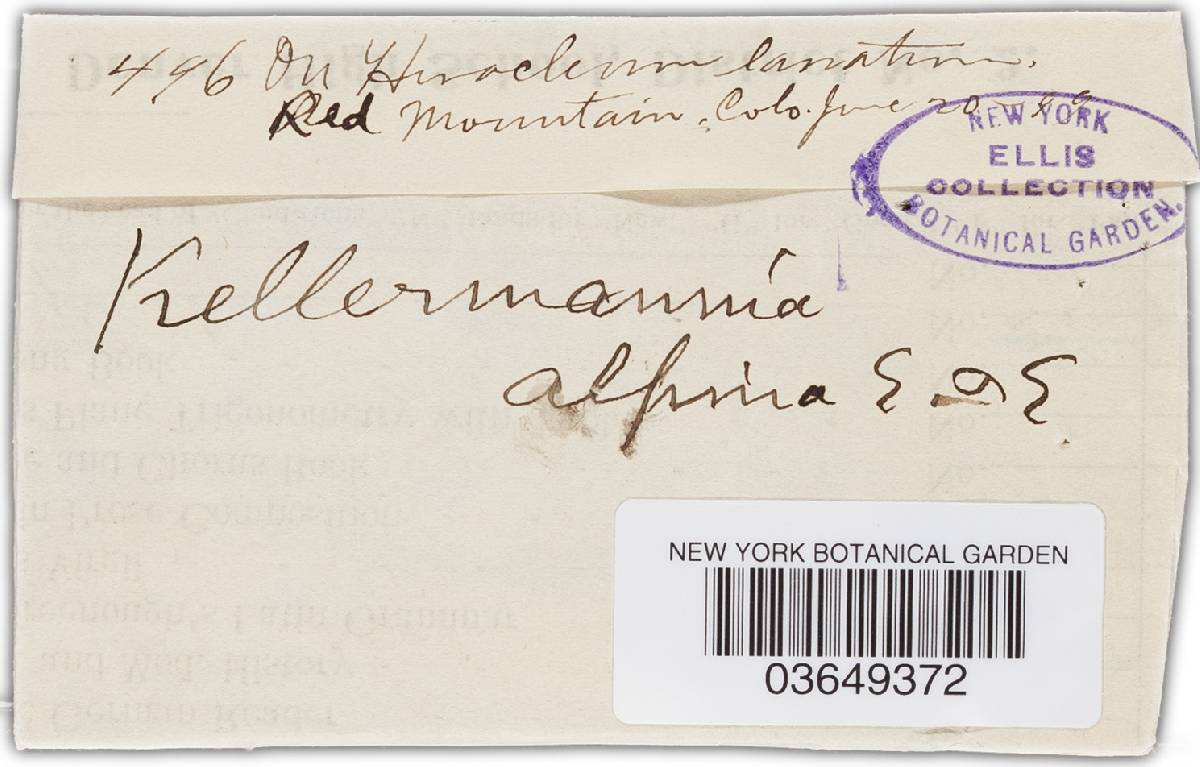 496 On Heracleum lanatum.
Red Mountain, Colo. June 20
NEW YORK
ELLIS
COLLECTION
BOTANICAL GARDEN.
Kellermannia
alpina E & E
NEW YORK BOTANICAL GARDEN
03649372